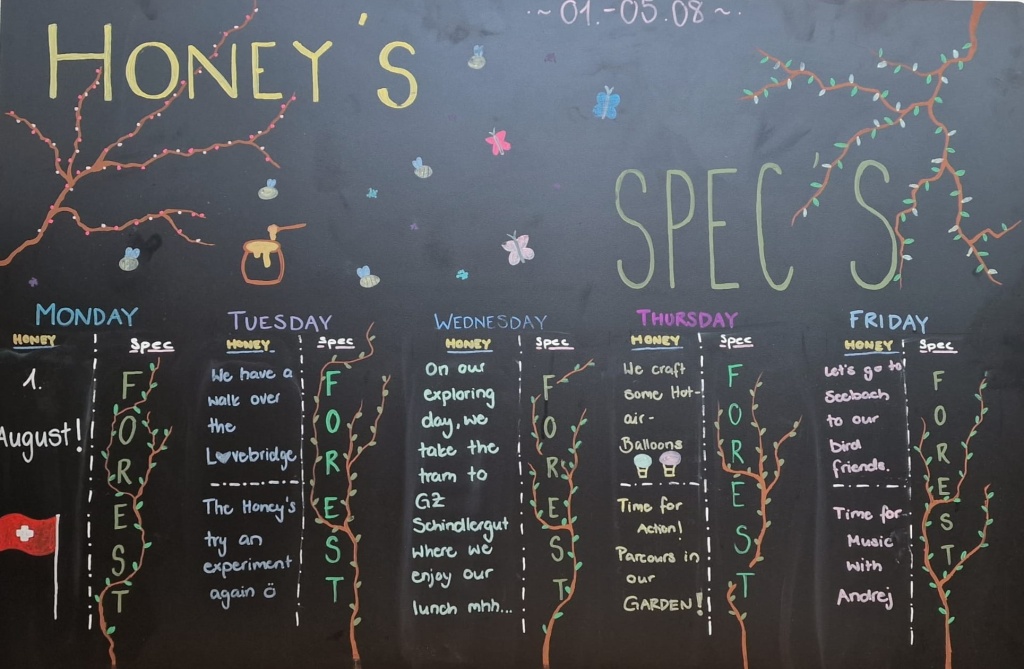 ·~ 01.-05.08 ~·
HONEY'S
SPEC'S
MONDAY
HONEY
Spec
1.
August!
FOREST
TUESDAY
HONEY
Spec
We have a
walk over
the
L♥vebridge
The Honey's
try an
experiment
again ö
FOREST
WEDNESDAY
HONEY
Spec
On our
exploring
day, we
take the
tram to
GZ
Schindlergut
where we
enjoy our
lunch mhh...
FOREST
THURSDAY
HONEY
Spec
We craft
some Hot-
air-
Balloons
Time for
Action!
Parcours in
our
GARDEN!
FOREST
FRIDAY
HONEY
Spec
Let's go to
Seebach
to our
bird
friends.
Time for
Music
with
Andrej
FOREST